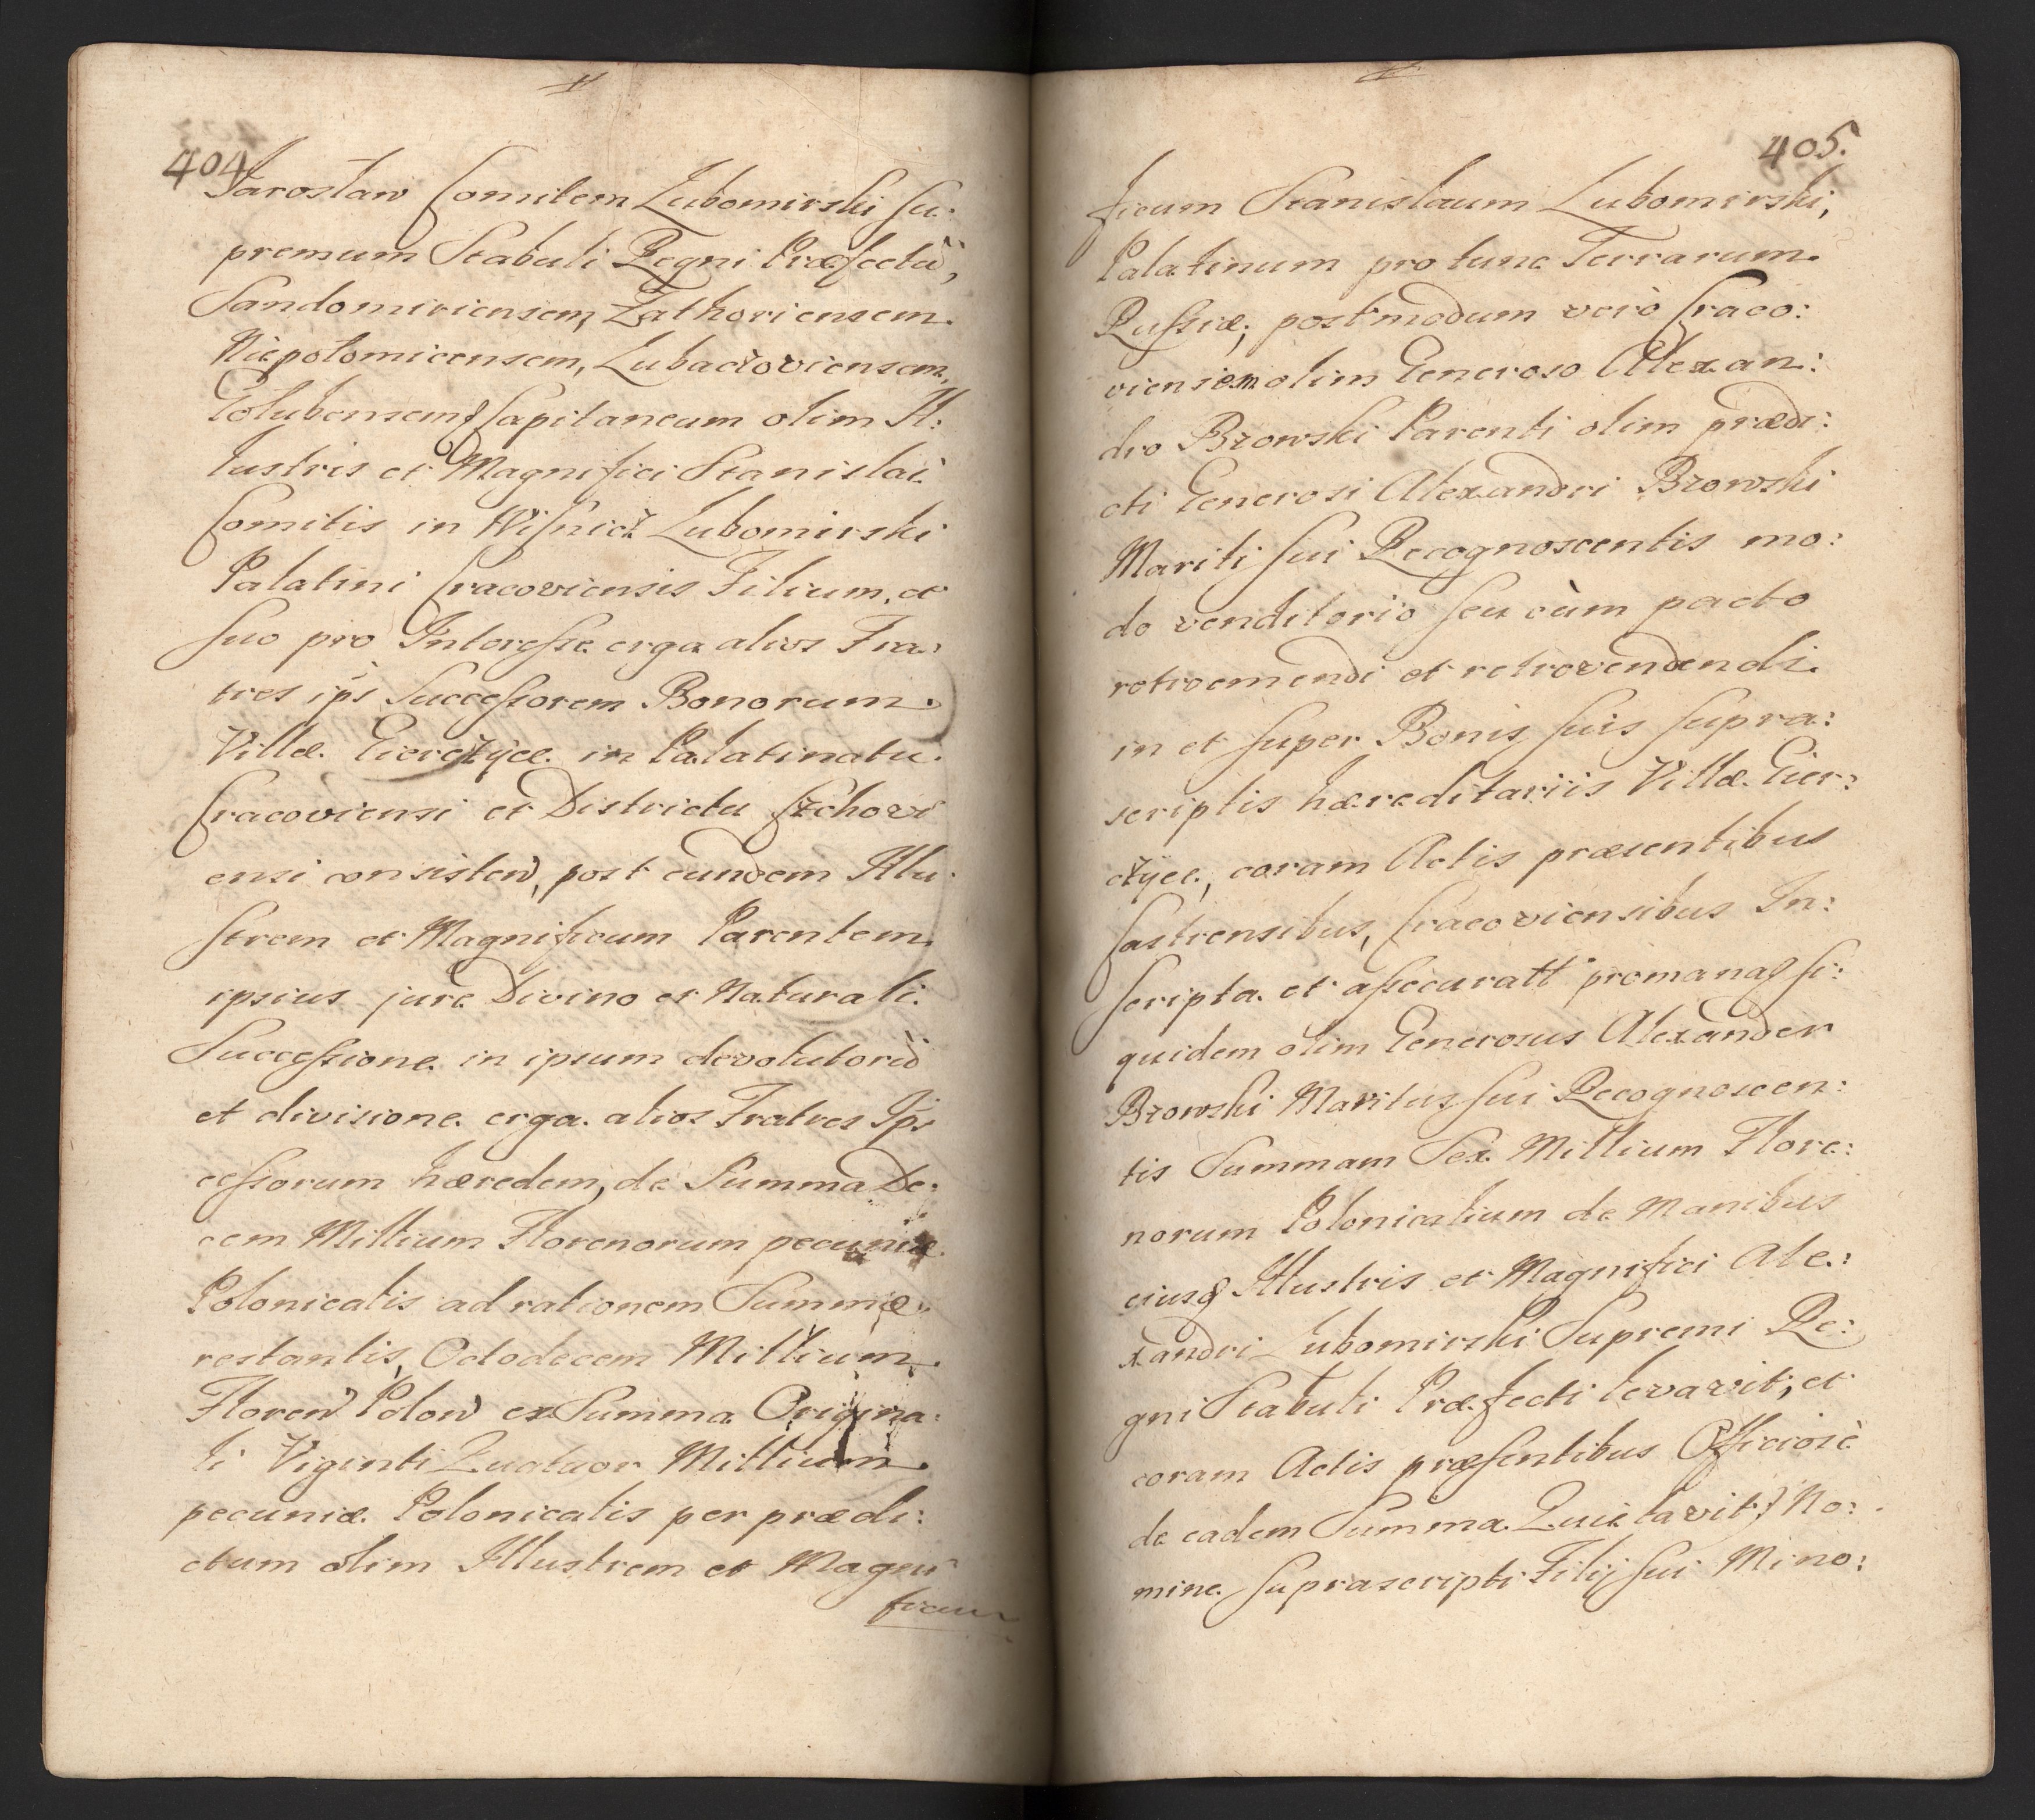 404
Jarosław Comitem Lubomirski Su:
premum Stabuli Regni Præfectũ,
Sandomiriensem, Zathoriensem.
Niepolomicensem, Lubaczoviensem,
Golubensemq Capitaneum olim Il:
lustris et Magnifici Stanislai
Comitis in Wisnicz Lubomirski
Palatini Cracoviensis Filium, et
suo pro Interesse erga alios Fra:
tres ips Successorem Bonorum.
Villæ Gierczyce in Palatinatu.
Cracoviensi et Districtu Szchovi
ensi consisten, post eundem Illu.
strem et Magnificum Parentem
ipsius jure Divino et Naturali.
Successione in ipsum devolutorũ
et divisione erga alios Fratres Ips
cessorum hæredem, de Summa De:
cem Millium Florenorum pecuniæ
Polonicalis ad rationem Summæ
restantis, Octodecem Millium.
Floren Polon ex Summa Origina:
li Viginti Quatuor Millium.
pecuniæ Polonicalis per prædi:
ctum olim Illustrem et Magni
ficum
405.
ficum Stanislaum Lubomirski,
Palatinum pro tunc Terrarum
Russiæ, postmodum verò Craco:
viensem olim Generoso Alexan:
dro Brzowski Parenti olim prædi:
cti Generosi Alexandri Brzowski
Mariti sui Recognoscentis mo:
do venditorio seu cùm pacto
retroemendi et retrovendendi
in et super Bonis suis supra:
scriptis hæreditariis Villæ Gier:
czyce, coram Actis præsentibus
Castrensibus, Cracoviensibus In:
scripta et assecuratt promanaq si:
quidem olim Generosus Alexander
Brzowski Maritus sui Recognoscen:
tis Summam Sex Millium Flore:
norum Polonicalium de Manibus
eiusq Illustris et Magnifici Ale:
xandri Lubomirski Supremi Re:
gni Stabuli Præfecti levavit, et
coram Actis præsentibus Officiosè
de eadem Summa Quietavit, No:
mine suprascripti Filij sui Mino: